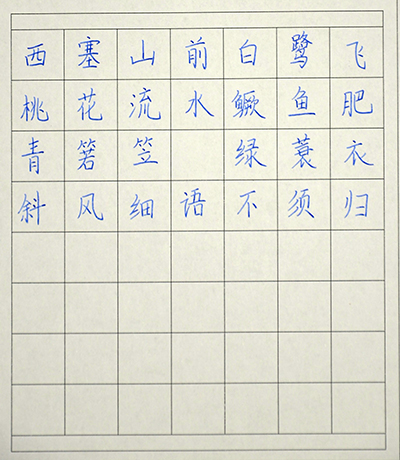 西塞山前白鹭飞
桃花流水鳜鱼肥
青箬笠 绿蓑衣
斜风细语不须归